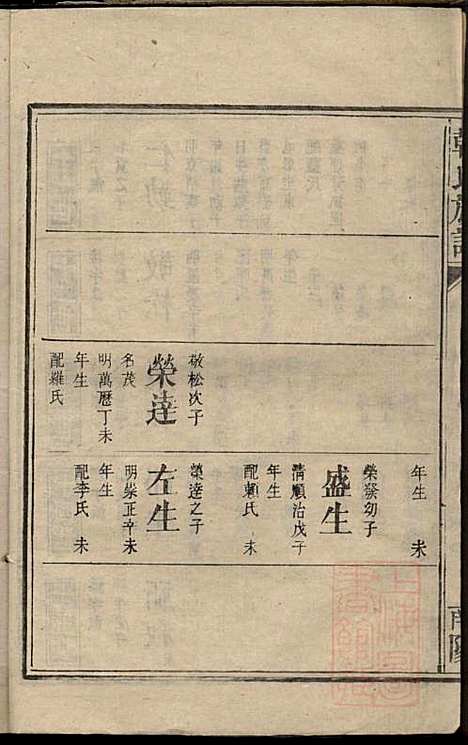 韓氏族譜
南陽
敬松次子
榮達
名茂
明萬曆丁未
年生
配羅氏
年生 未
榮發幼子
盛生
清順治戊子
年生
配賴氏 未
榮達之子
左生
明崇正辛未
年生
配李氏 未